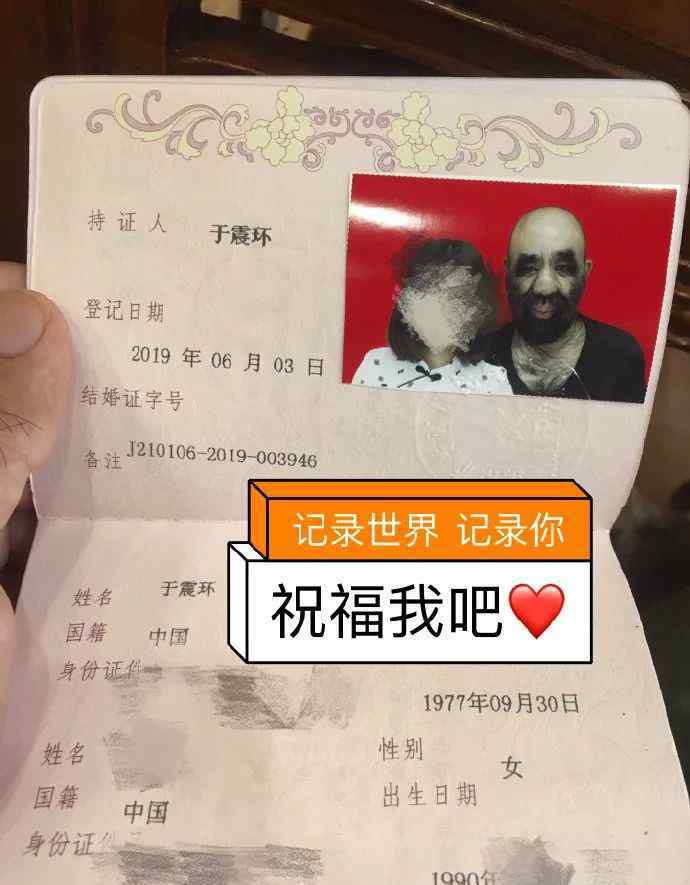 持证人 于震环
登记日期
2019 年 06 月 03 日
结婚证字号
J210106-2019-003946
备注
记录世界 记录你
祝福我吧❤️
姓名 于震环
国籍 中国
身份证件
1977年09月30日
姓名
性别 女
国籍 中国
出生日期
身份证件
1990年